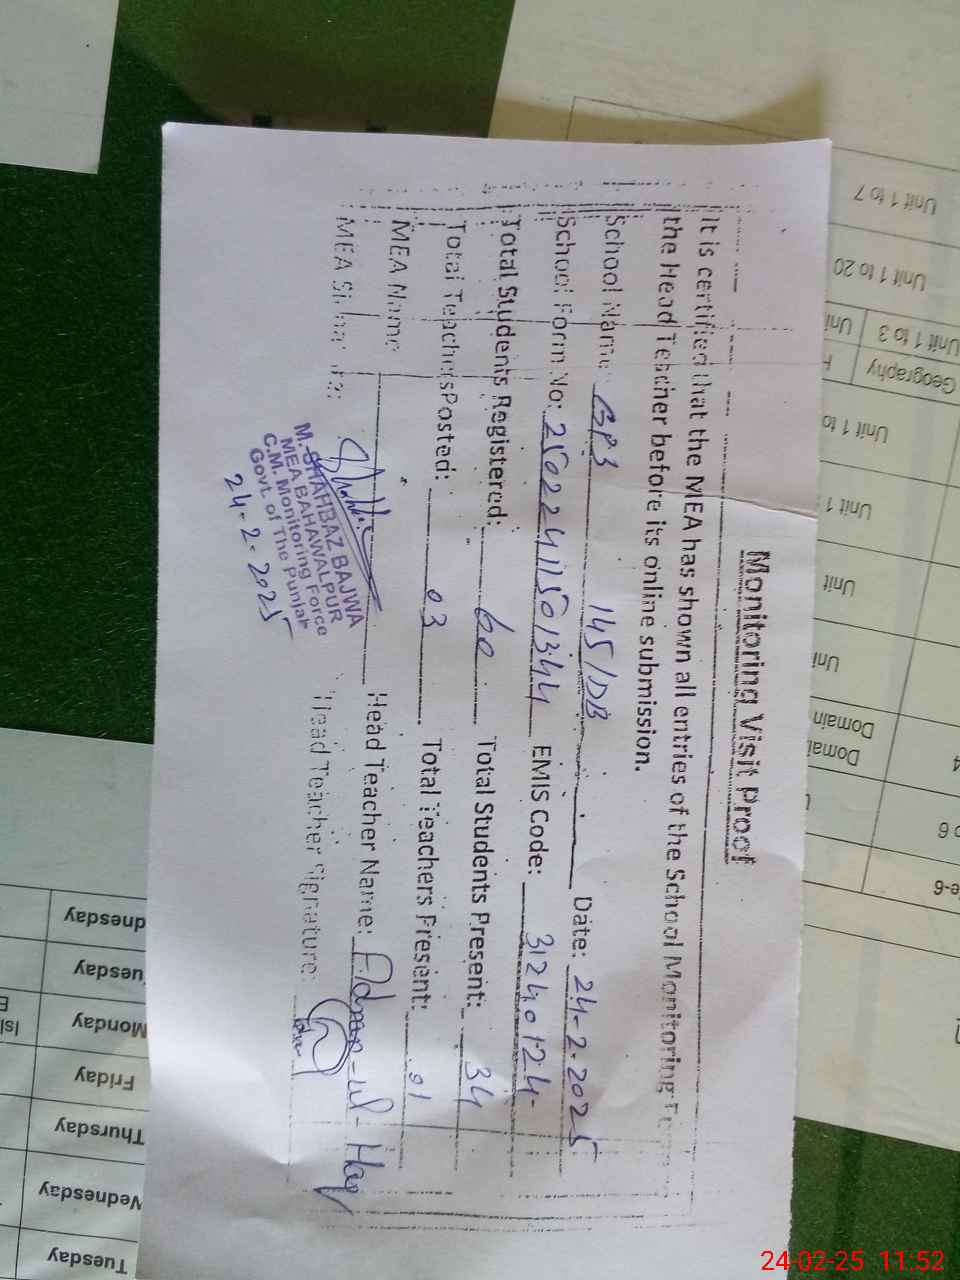 Monitoring Visit Proof
It is certified that the MEA has shown all entries of the School Monitoring
the Head Teacher before its online submission.
School Name: GPS 145/DB Date: 24-2-2025
School Form No: EMIS Code: 31240124-
Total Students Registered: 60 Total Students Present: 34
Total Teachers Posted: 03 Total Teachers Present: 01
MEA Name Head Teacher Name: -ul-Haq
MEA Signature: Head Teacher Signature:
M. SHAHBAZ BAJWA
MEA BAHAWALPUR
C.M. Monitoring Force
Govt. of The Punjab
24-2-2025
Unit 1 to 7
Unit 1 to 20
Unit 1 to 3 Uni
Geography
Unit 1 to
Unit 1
Unit
Uni
Domain
Domai
Wednesday
Monday
Friday
Thursday
Wednesday
Tuesday
24-02-25 11:52